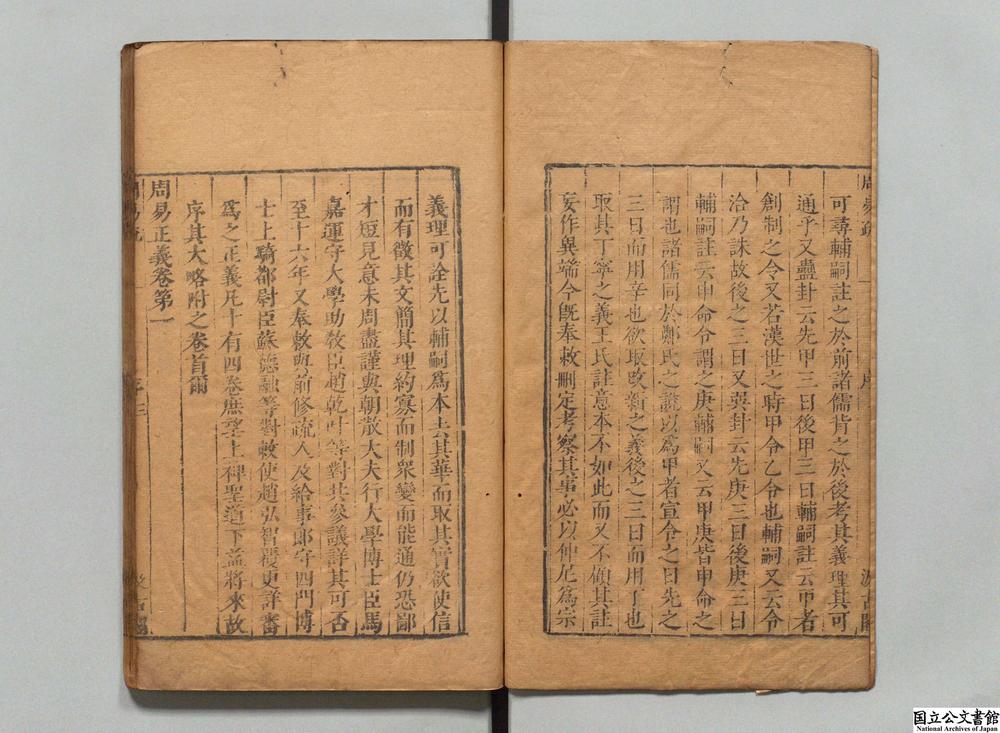 可尋輔嗣註之於前諸儒背之於後考其義理其可
通乎又蠱卦云先甲三日後甲三日輔嗣註云甲者
創制之令又若漢世之時甲令乙令也輔嗣又云令
洽乃誅故後之三日又巽卦云先庚三日後庚三日
輔嗣註云申命令謂之庚輔嗣又云甲庚皆申命之
謂也諸儒同於鄭氏之說以為甲者宣令之日先之
三日而用辛也欲取改新之義後之三日而用丁也
取其丁寧之義王氏註意本不如此而又不顧其註
妄作異端今既奉敕刪定考察其事必以仲尼為宗
義理可詮先以輔嗣為本去其華而取其實欲使信
而有徵其文簡其理約寡而制衆變而能通仍恐鄙
才短見意未周盡謹與朝散大夫行大學博士臣馬
嘉運守大學助教臣趙乾叶等對共參議詳其可否
至十六年又奉敕與前修疏人及給事郎守四門博
士上騎都尉臣蘇德融等對敕使趙弘智覆更詳審
為之正義凡十有四卷庶望上裨聖道下益將來故
序其大略附之卷首爾
周易正義卷第一
国立公文書館
National Archives of Japan